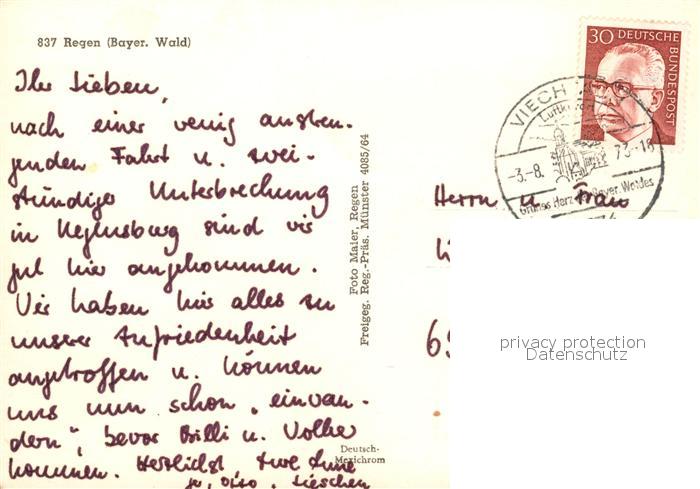 837 Regen (Bayer. Wald)
Ihr Lieben,
nach einer wenig anstren-
genden Fahrt u. zwei-
stündiger Unterbrechung
in Regensburg sind wir
gut hier angekommen.
Wir haben hier alles zu
unserer Zufriedenheit
angetroffen u. können
uns nun schon „einwan-
dern", bevor Billi u. Volker
kommen. Herzlichst, Eure Anne
Otto, Lieschen
Foto Maier, Regen
Freigeg. Reg.-Präs. Münster 4085/64
Deutsch-
Mexichrom
30 DEUTSCHE
BUNDESPOST
VIECH
Luftkurort
-3.-8. 73-18
Grünes Herz Bayer. Waldes
Herrn u. Frau
privacy protection
Datenschutz